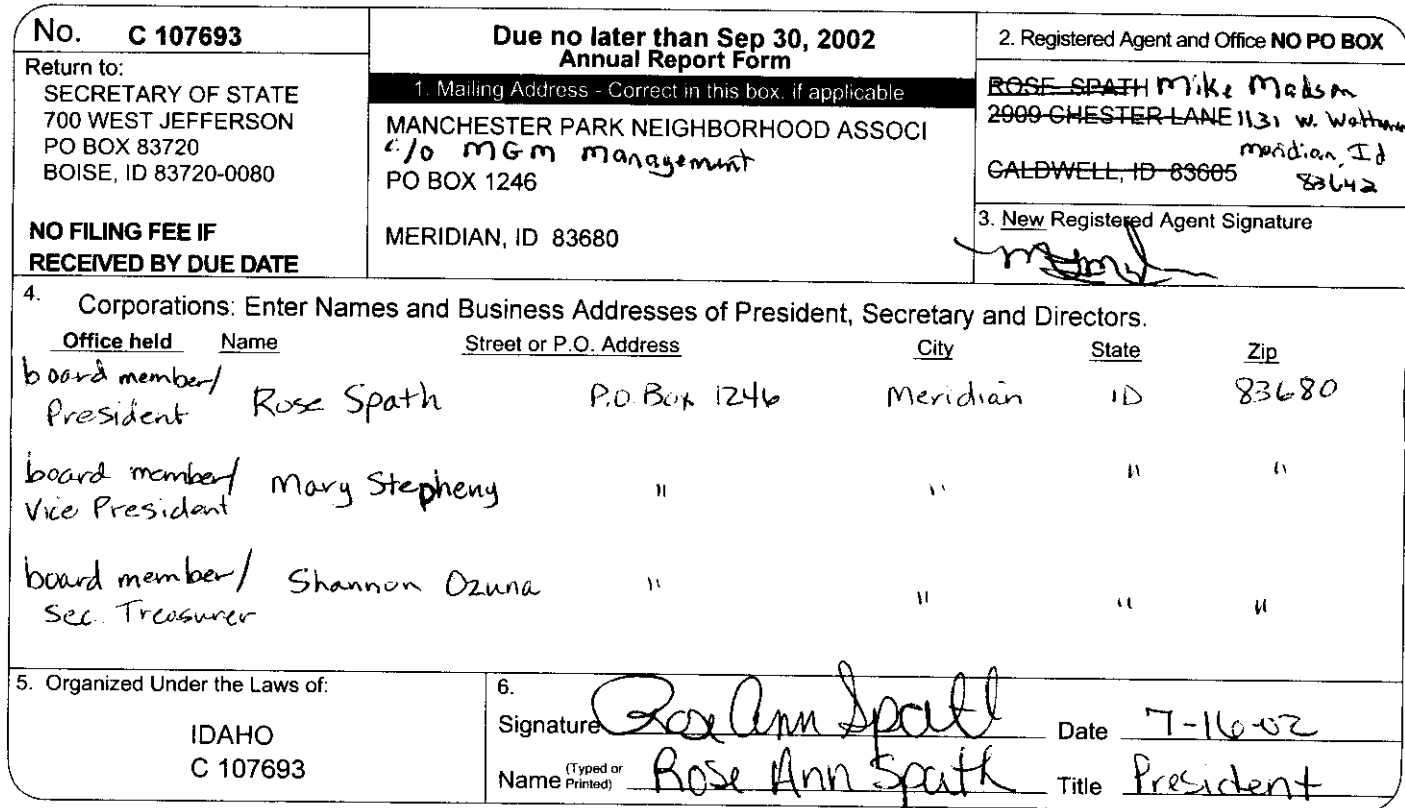 No. C 107693
Return to:
SECRETARY OF STATE
700 WEST JEFFERSON
PO BOX 83720
BOISE, ID 83720-0080
NO FILING FEE IF
RECEIVED BY DUE DATE
Due no later than Sep 30, 2002
Annual Report Form
1. Mailing Address - Correct in this box. if applicable
MANCHESTER PARK NEIGHBORHOOD ASSOCI
c/o MGM Management
PO BOX 1246
MERIDIAN, ID 83680
2. Registered Agent and Office NO PO BOX
ROSE SPATH Mike Madson
2909 CHESTER LANE 1131 W.
meridian, Id
CALDWELL, ID 83605 83642
3. New Registered Agent Signature
4. Corporations: Enter Names and Business Addresses of President, Secretary and Directors.
Office held Name Street or P.O. Address City State Zip
board member/
President Rose Spath P.O. Box 1246 Meridian ID 83680
board member/ Mary Stepheny " " " "
Vice President
board member/ Shannon Ozuna " " " "
Sec. Treasurer
5. Organized Under the Laws of:
IDAHO
C 107693
6.
Signature Rose Ann Spath Date 7-16-02
Name (Typed or Printed) Rose Ann Spath Title President